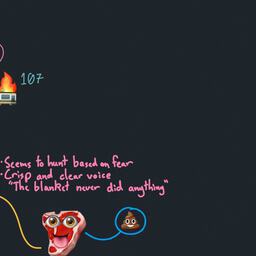 107
·Seems to hunt based on fear
·Crisp and clear voice
"The blanket never did anything"